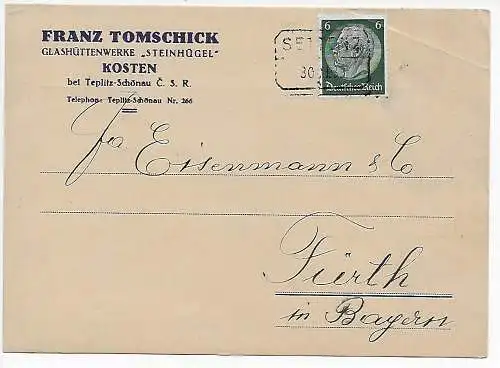 FRANZ TOMSCHICK
GLASHÜTTENWERKE „STEINHÜGEL“
KOSTEN
bei Teplitz-Schönau Č. S. R.
Telephon: Teplitz-Schönau Nr. 266
6 6
Deutsches Reich
30
Fa. Eisenmann & Co
Fürth
in Bayern